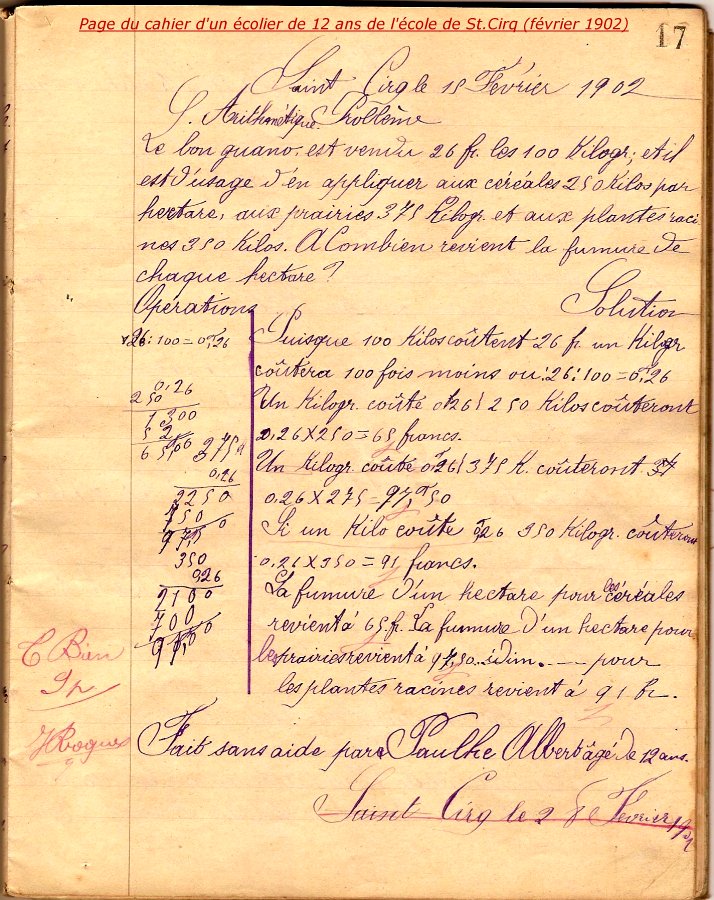 Page du cahier d'un écolier de 12 ans de l'école de St.Cirq (février 1902)
17
Saint Cirq le 15 Février 1902
Arithmétique. Problème
Le bon guano est vendu 26 fr. les 100 Kilogr; et il
est d'usage d'en appliquer aux céréales 250 kilos par
hectare, aux prairies 375 Kilogr. et aux plantes raci
nes 350 Kilos. A Combien revient la fumure de
chaque hectare?
Opérations
Solution
26: 100 = 0f,26
0,26
250
1300
52
65,00
375
0,26
2250
750
97,50
350
0,26
2100
700
91,00
Puisque 100 Kilos coûtent 26 fr. un Kilogr
coûtera 100 fois moins ou: 26: 100 = 0f,26
Un Kilogr. coûte 0f26; 250 Kilos coûteront
0,26 X 250 = 65 francs.
Un Kilogr. coûte 0f26; 375 K. coûteront
0.26 X 275 = 97f,50
Si un Kilo coûte 0f26 350 Kilogr. coûteront
0.26 X 350 = 91 francs.
La fumure d'un hectare pour les céréales
revient à 65 fr. La fumure d'un hectare pour
les prairies revient à 97,50. idim. --- pour
les plantes racines revient à 91 fr.
T Bien
9p
Fait sans aide par Paulhe Albert âgé de 12 ans.
Saint Cirq le 28 Février